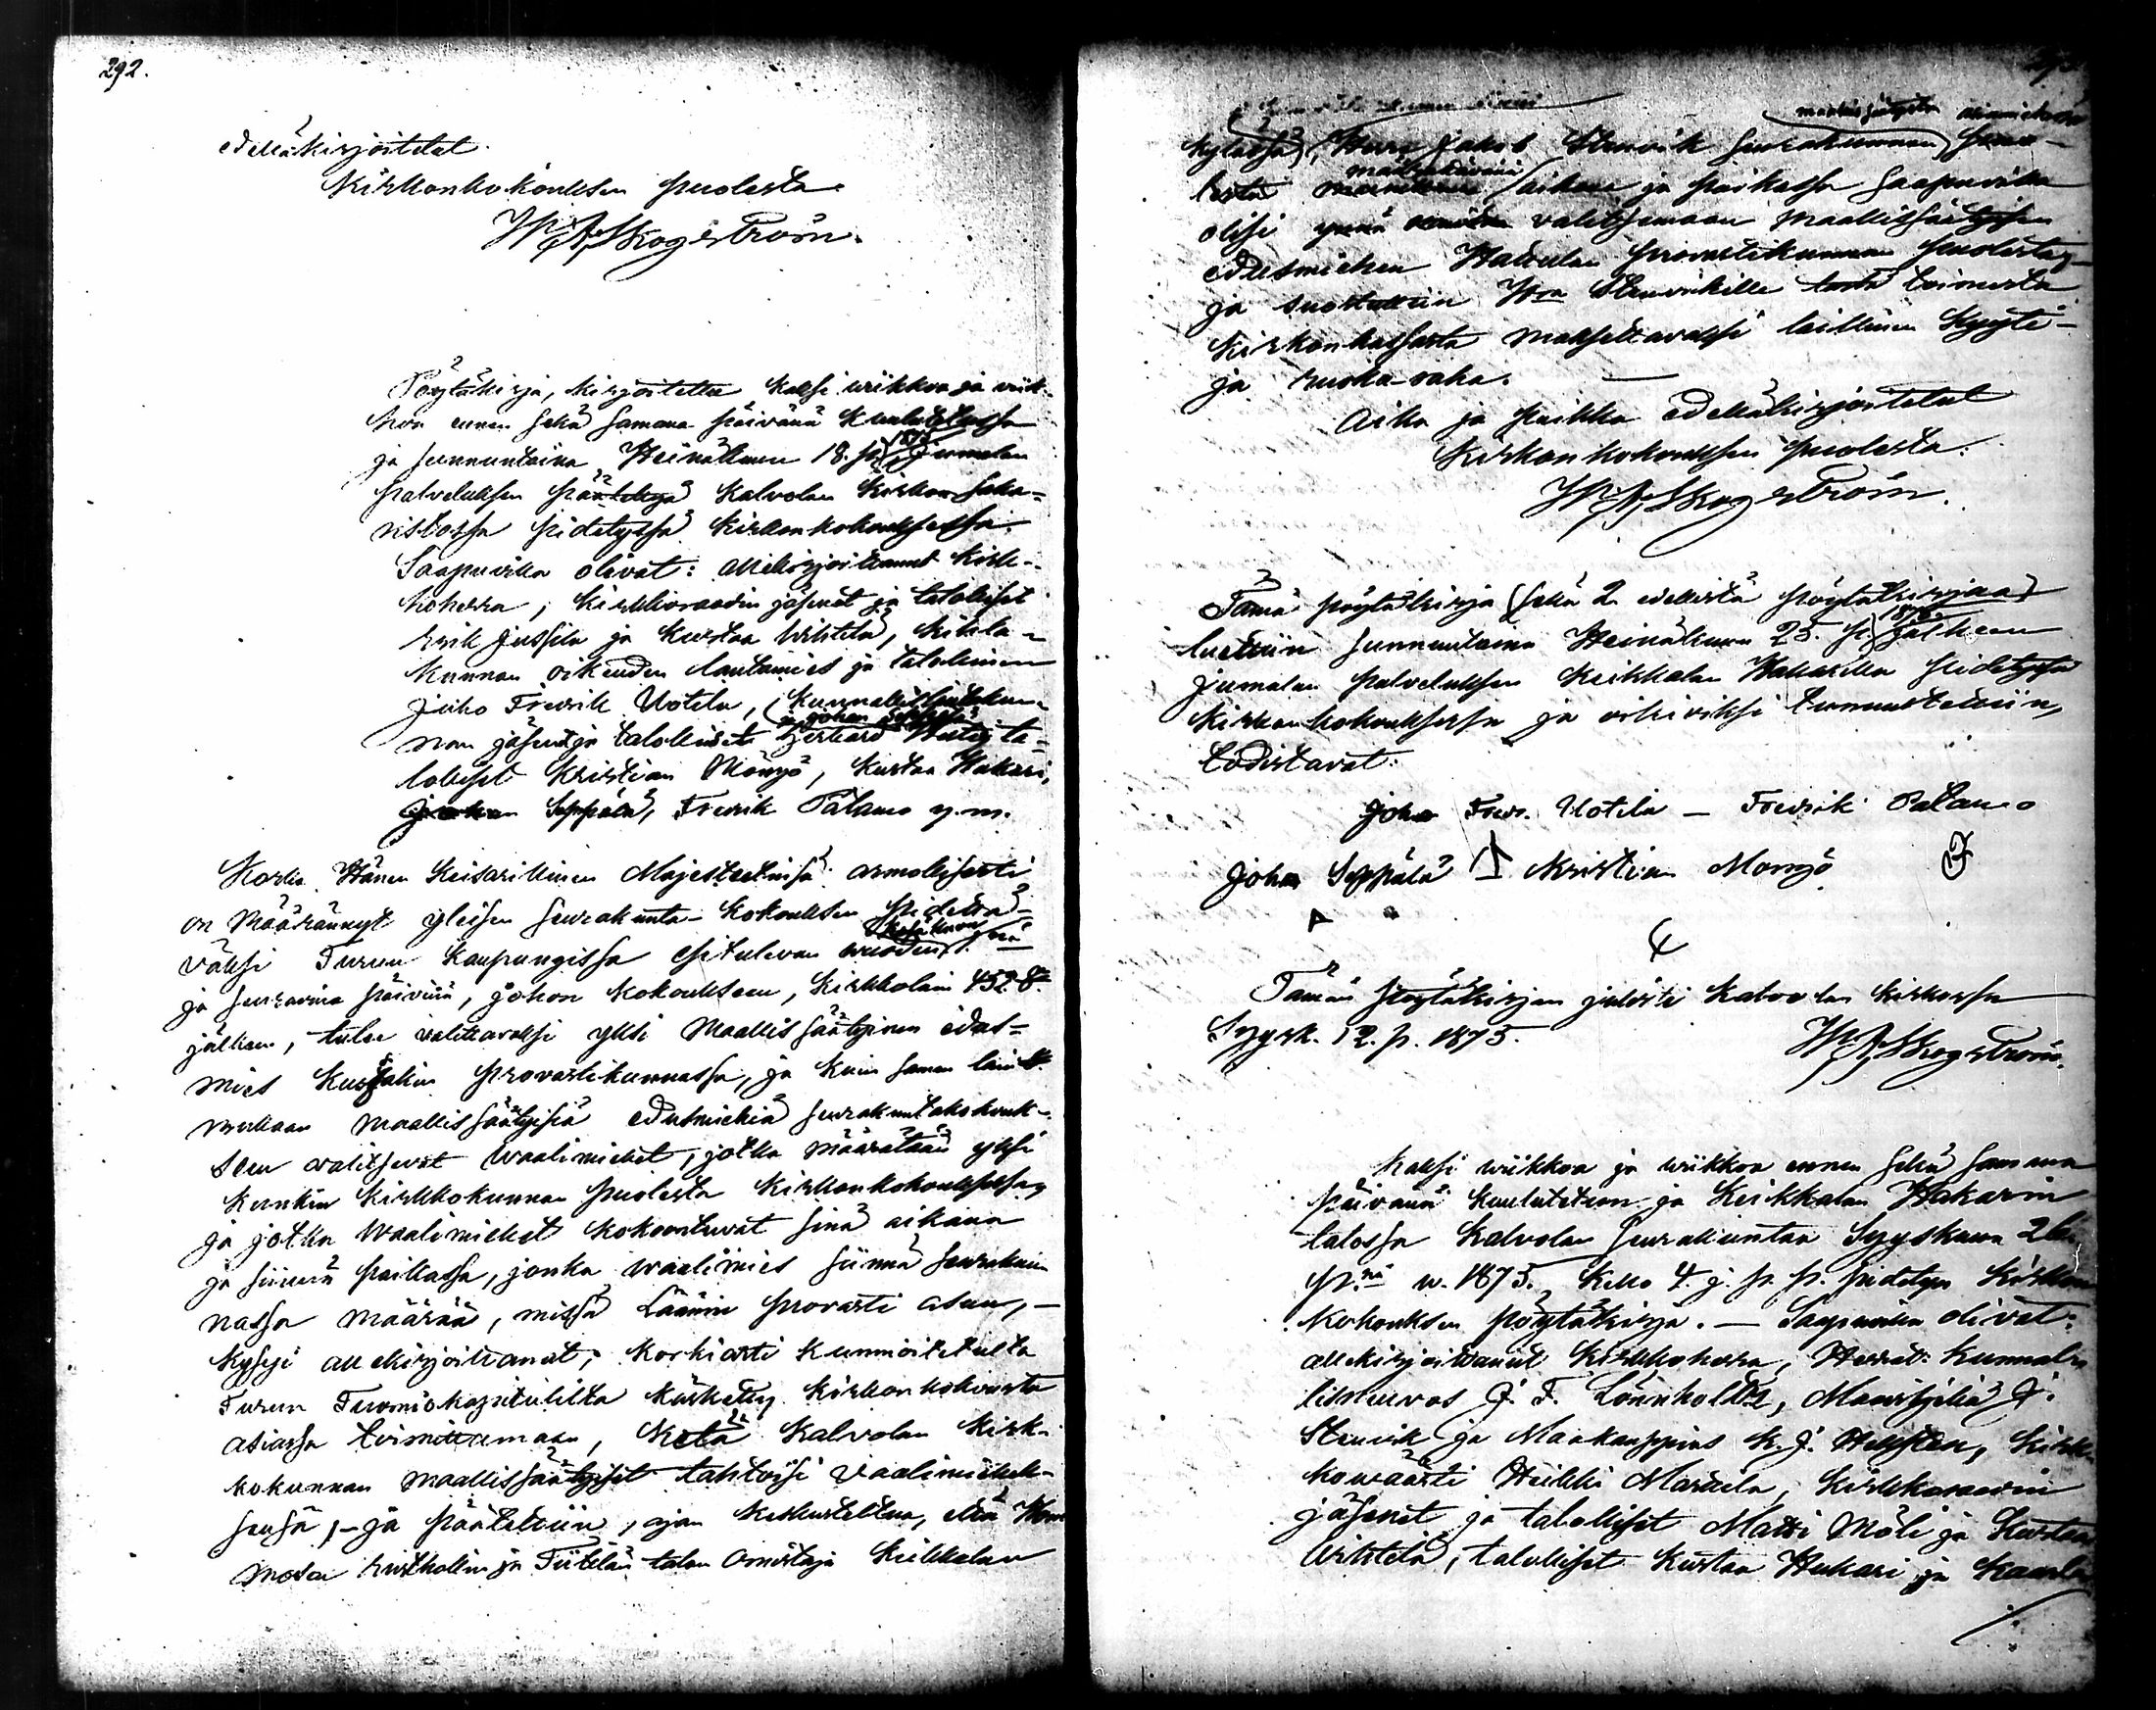 292.
edelläkirjoitetut.
Kirkonkokouksen puolesta
W A Skogström.
Pöytäkirja, kirjoitettu kaksi wiikkoa ja wiik-
koa ennen sekä samana päivänä kuulutetussa
ja sunnuntaina Heinäkuun 18. p. 1875 Jumalan
palveluksen päätettyä Kalvolan kirkon saka-
ristossa pidetyssä kirkonkokouksessa.
Saapuvilla olivat: allekirjoittanut kirk-
koherra, kirkkoraadin jäsenet ja talolliset
Erik Jussila ja Kustaa Wihtilä, kihla-
kunnan oikeuden lautamies ja talollinen
Juho Fredrik Uotila, kunnallislautakun-
ja Johan Seppälä
nan jäsenet ja talolliset Gerhard ta-
lolliset Kristian Mönyö, Kustaa Hakari,
Johan Seppälä, Fredrik Patamo y.m.
Koska Hänen Keisarillinen Majesteetinsa armollisesti
on määrännyt yleisen seurakunta-kokouksen pidettä-
väksi Turun kaupungissa esitulevan wuoden Kesäkuun 1 nä
ja seuraavina päivinä, johon kokoukseen, Kirkkolain 452 §
jälkeen, tulee valittavaksi yksi maallissäätyinen edus-
mies kustakin provastikunnassa, ja kuin saman lain §
mukaan maallissäätyisiä edusmiehiä seurakuntakokouk-
seen valitsevat waalimiehet, jotka määrätään yksi
kunkin kirkkokunnan puolesta kirkonkokouksessa,
ja jotka waalimiehet kokoontuvat sinä aikana
ja siinnä paikassa, jonka waalimies siinnä seurakun-
nassa määrää, missä Läänin provasti asuu, —
kysyi allekirjoittanut, korkiasti kunnioitetulta
Turun Tuomiokapitulilta käsketty kirkonkokousta
asiassa toimittamaan, ketä Kalvolan kirk-
kokunnan maallissäätyiset tahtoisi vaalimiehek-
sensä, — ja päätettiin, asian keskusteltua, että
Rusthollin ja Tiitilän talon omistaja Keikkalan
kylässä, Herra Jakob Stenvik seurakunnan maallissäätyisten asiamiehenä puo-
lesta määrättävänä aikana ja paikassa saapuvilla
olisi valitsemaan maallissäätyisen
edusmiehen Hattulan provastikunnan puolesta,
ja suostuttiin Hra Stenvikille tästä toimesta
kirkonkassasta maksettavaksi laillinen kyyti-
ja ruoka-raha. —
Aika ja paikka edelläkirjoitetut
Kirkonkokouksen puolesta.
W A Skogström.
Tämä pöytäkirja (sekä 2 edellistä pöytäkirjaa)
luettiin sunnuntaina Heinäkuun 25. p. 1875 jälkeen
Jumalan palveluksen Keikkalan Hakarilla pidetyssä
kirkonkokouksessa ja oikiaksi tunnustettiin,
todistavat:
Johan Fredr. Uotila — Fredrik Patamo
Johan Seppälä Kristian Monyö
Tämän pöytäkirjan julisti Kalvolan kirkossa
Syysk. 12. p. 1875.
W A Skogström.
Kaksi wiikkoa ja wiikkoa ennen sekä samana
päivänä kuulutetun ja Keikkalan Hakarin
talossa Kalvolan seurakuntaa Syyskuun 26
p:nä w. 1875. Kello 4 j. p. p. pidetyn kirkon-
kokouksen pöytäkirja. — Saapuvilla olivat:
allekirjoittanut kirkkoherra, Herrat: kunnal-
lisneuvos J. F. Lönnholtz, Maanviljeliä J.
Stenvik ja Maakauppias K. J. Hellstén, kirk-
kowäärti Heikki Marttila, kirkkoraadin
jäsenet ja talolliset Matti Möli ja Kustaa
Wihtilä, talolliset Kustaa Hakari ja Kaarlo